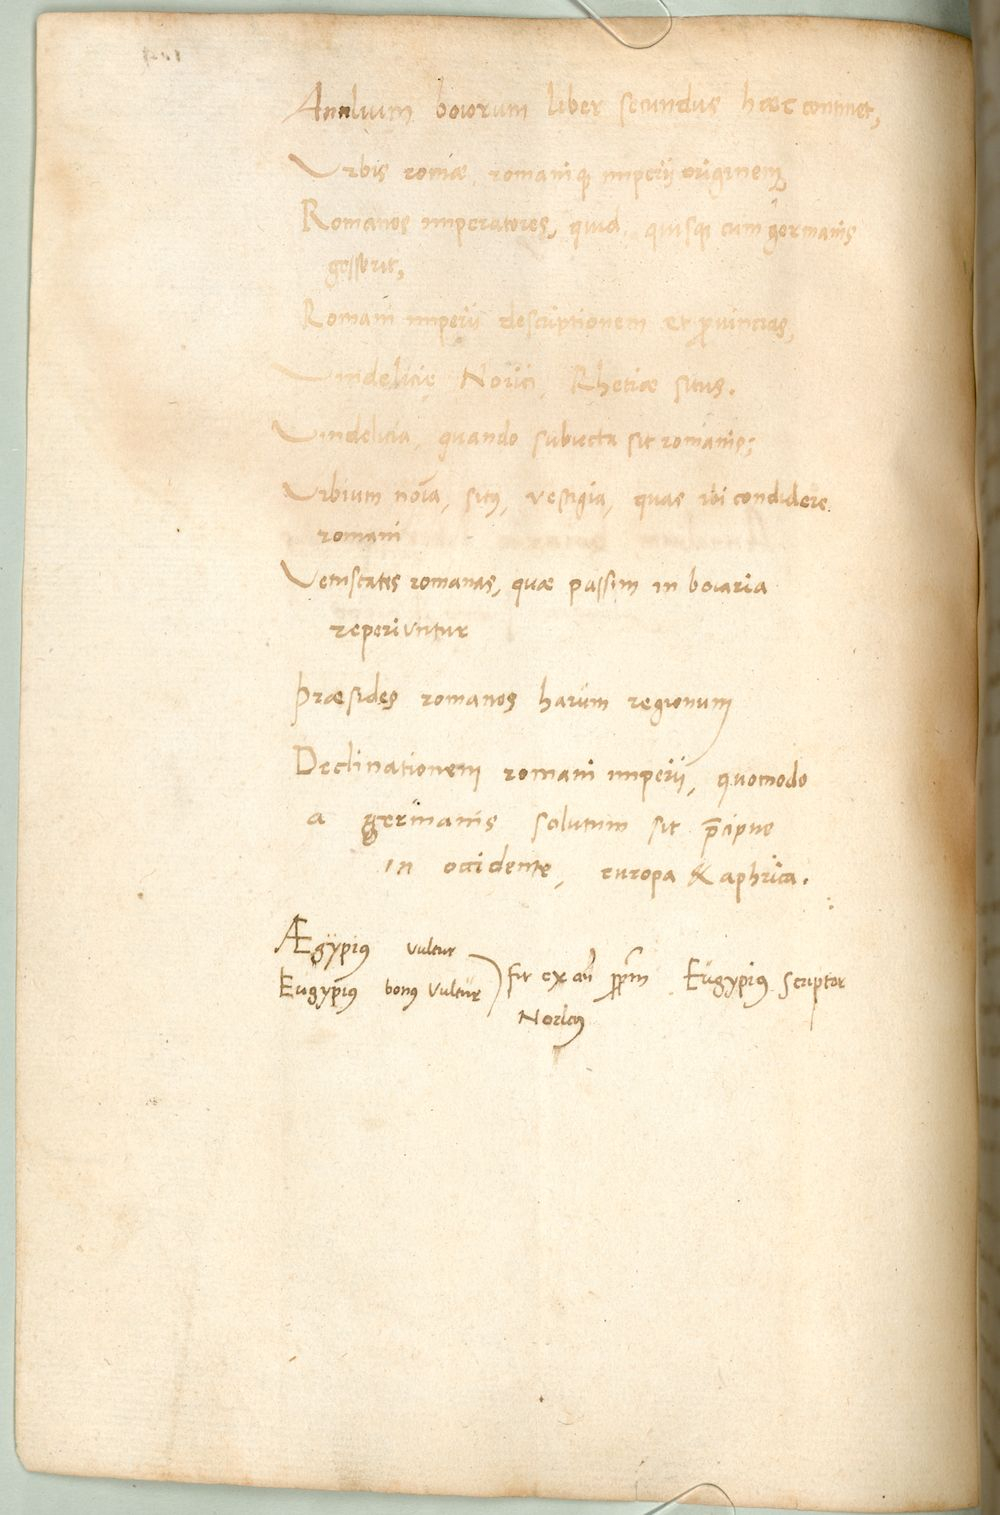 Annalium boiorum liber secundus haec continet,
Urbis romæ romaniq; imperii originem
Romanos imperatores, quid quisq; cum germanis
gesserit,
Romani imperii descriptionem et provincias,
Vindelicię Norici, Rhetiæ situs.
Vindelicia, quando subiecta sit romanis;
Urbium no͞ia, sitꝰ, vestigia, quas ibi condidere
romani
Vetustates romanas, quæ passim in boiaria
reperiuntur
Præsides romanos harum regionum
Declinationem romani imperii, quomodo
a germanis solutum sit p͞cipue
in occidente, europa & aphrica.
Ægÿpiꝰ vultur
Eugÿpiꝰ bonꝰ vultur ) fit ex Eügypiꝰ scriptor
Noricꝰ